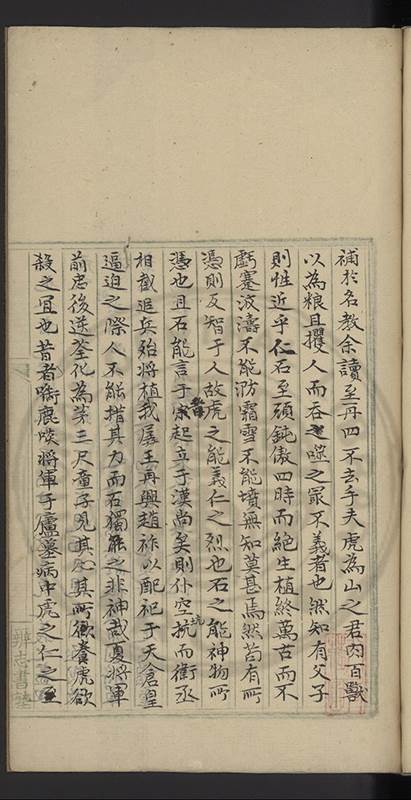 補於名教余讀至再四不去手夫虎為山之君肉百獸
以為粮且攫人而吞之噬之眾不義者也然知有父子
則性近乎仁石至頑鈍傲四時而絕生植終萬古而不
虧蹇波濤不能泐霜雪不能墳無知莫甚焉然苟有所
憑則反智于人故虎之能義仁之烈也石之能神物所
憑也且石能言于晉起立于漢尚矣則仆空坑而衝丞
相截追兵殆將植我孱王再興趙祚以配祀于天倉皇
逼迫之際人不能措其力而石獨能之非神哉夏將軍
前忠後逆荃化為茅三尺童子見其心其所欲養虎欲
殺之宜也昔者啣鹿啖將軍于廬墓病中虎之仁之至
辨志書塾